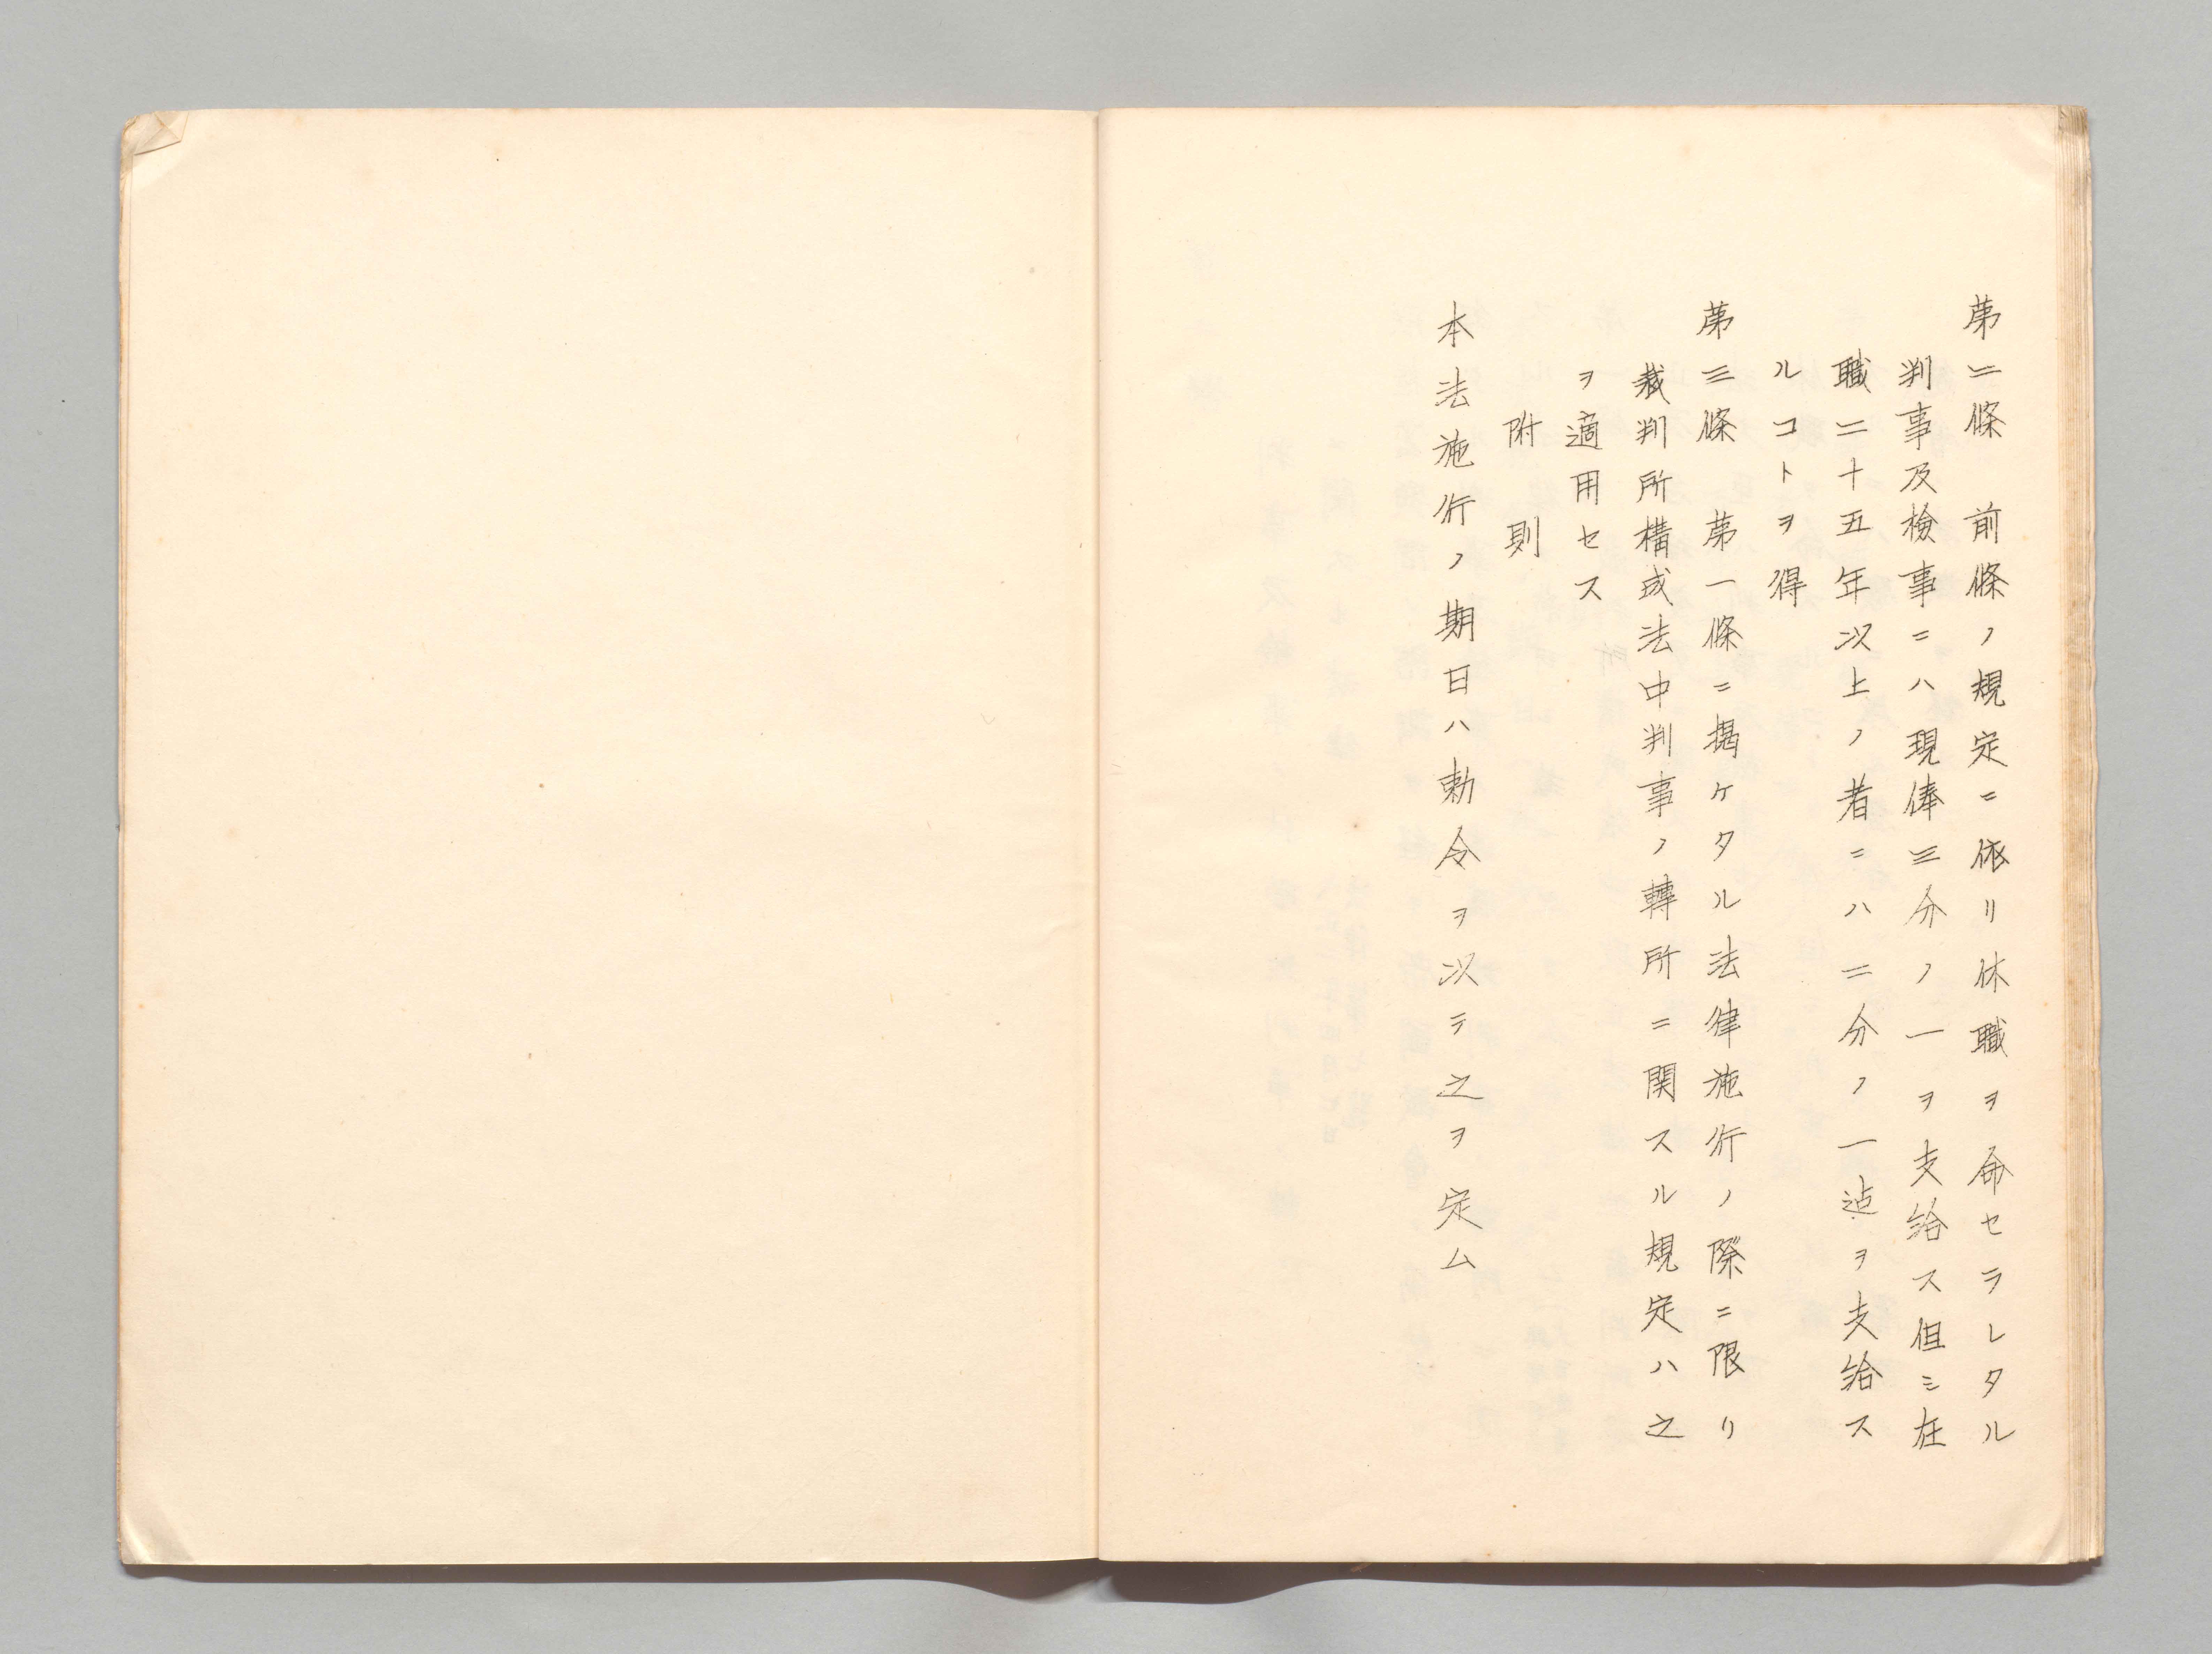 第二條　前條ノ規定ニ依リ休職ヲ命セラレタル
判事及檢事ニハ現俸三分ノ一ヲ支給ス但シ在
職二十五年以上ノ者ニハ二分ノ一迠ヲ支給ス
ルコトヲ得
第三條　第一條ニ揭ケタル法律施行ノ際ニ限リ
裁判所構成法中判事ノ轉所ニ関スル規定ハ之
ヲ適用セス
附則
本法施行ノ期日ハ勅令ヲ以テ之ヲ定ム